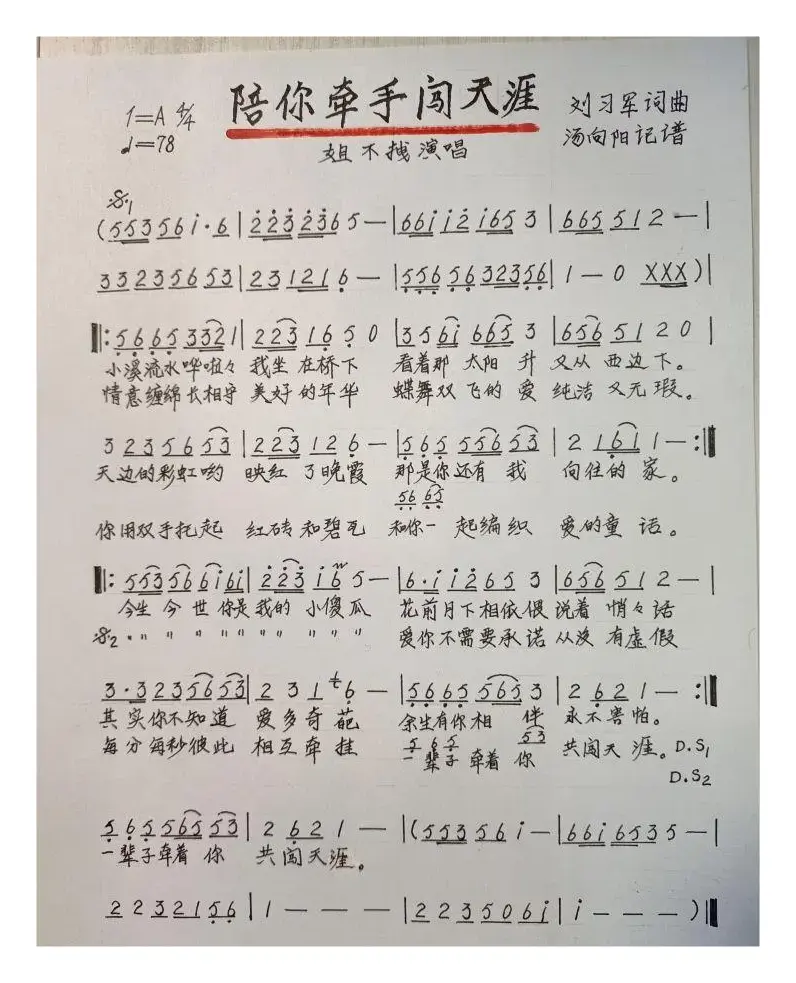 陪你牵手闯天涯
1=A 4/4
♩=78
刘习军词曲
汤向阳记谱
姐不拽演唱
𝄋1
(5 5 3 5 6 i · 6 | 2 2 3 2 3 6 5 — | 6 6 i i 2 i 6 5 3 | 6 6 5 5 1 2 — |
3 3 2 3 5 6 5 3 | 2 3 1 2 1 6 — | 5 5 6 5 6 3 2 3 5 6 | 1 — 0 XXX) |
‖: 5 6 6 5 3 3 2 1 | 2 2 3 1 6 5 0 | 3 5 6 i 6 6 5 3 | 6 5 6 5 1 2 0 |
小溪流水哗啦々 我坐在桥下 看着那太阳升 又从西边下。
情意缠绵长相守 美好的年华 蝶舞双飞的爱 纯洁又无瑕。
3 2 3 5 6 5 3 | 2 2 3 1 2 6 — | 5 6 5 5 5 6 5 3 | 2 1 6 1 1 — :‖
天边的彩虹哟 映红了晚霞 那是你还有我 向往的家。
5 6 6 5
你用双手托起 红砖和碧瓦 和你一起编织 爱的童话。
‖: 5 5 3 5 6 6 i 6 i | 2 2 3 i 6 5 — | 6 · i i 2 6 5 3 | 6 5 6 5 1 2 — |
今生今世你是我的小傻瓜 花前月下相依偎 说着悄々话
𝄋2 · 〃 〃 〃 〃 〃 〃 〃 〃 〃 爱你不需要承诺 从没有虚假
3 · 3 2 3 5 6 5 3 | 2 3 1 6 — | 5 6 6 5 5 6 5 3 | 2 6 2 1 — :‖
其实你不知道 爱多奇葩 余生有你相伴 永不害怕。
5 6 5 5 3
每分每秒彼此 相互牵挂 一辈子牵着你 共闯天涯。D.S1
D.S2
5 6 5 5 6 5 5 3 | 2 6 2 1 — | (5 5 3 5 6 i — | 6 6 i 6 5 3 5 — |
一辈子牵着你 共闯天涯。
2 2 3 2 1 5 6 | 1 — — — | 2 2 3 5 0 6 i | i — — — )‖